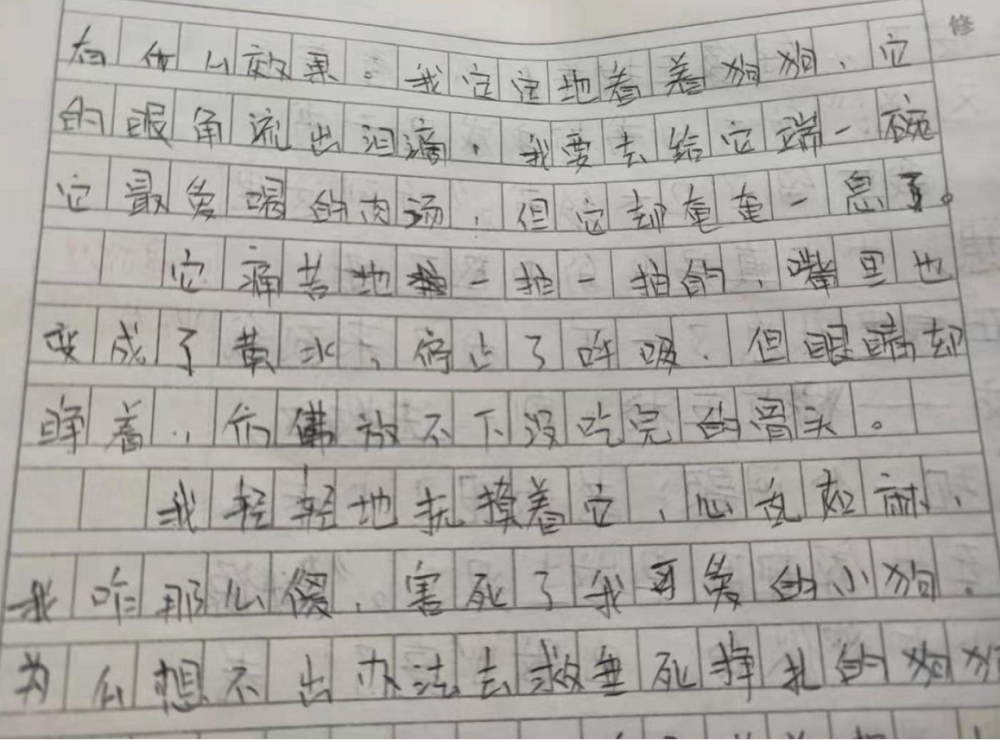 修
有什么效果。我定定地着着狗狗,它
的眼角流出泪滴,我要去给它端一碗
它最爱喝的肉汤,但它却奄奄一息了。
它痛苦地抽一抽一抽的,嘴里也
变成了黄水,停止了呼吸,但眼睛却
睁着,仿佛放不下没吃完的骨头。
我轻轻地抚摸着它,心乱如麻,
我咋那么傻,害死了我可爱的小狗。
为么想不出办法去救垂死挣扎的狗狗